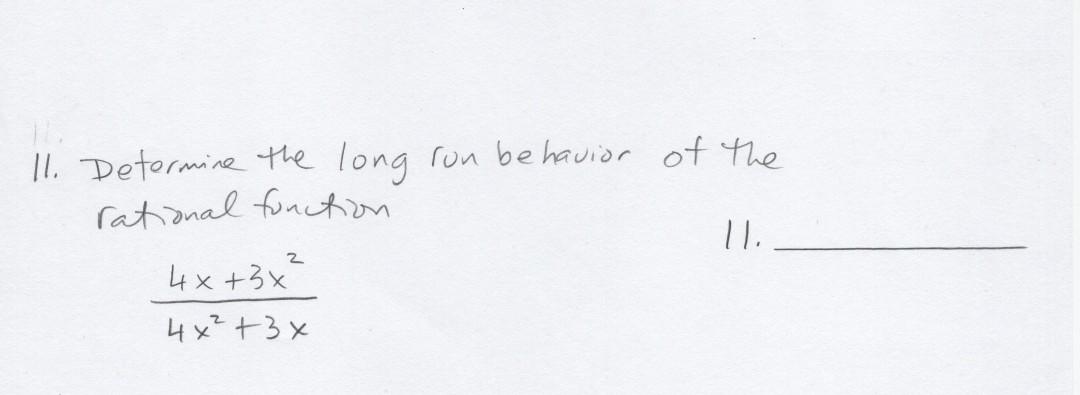 11. Determine the long run behavior of the
rational function
11. ________
4x + 3x²
4x² + 3x